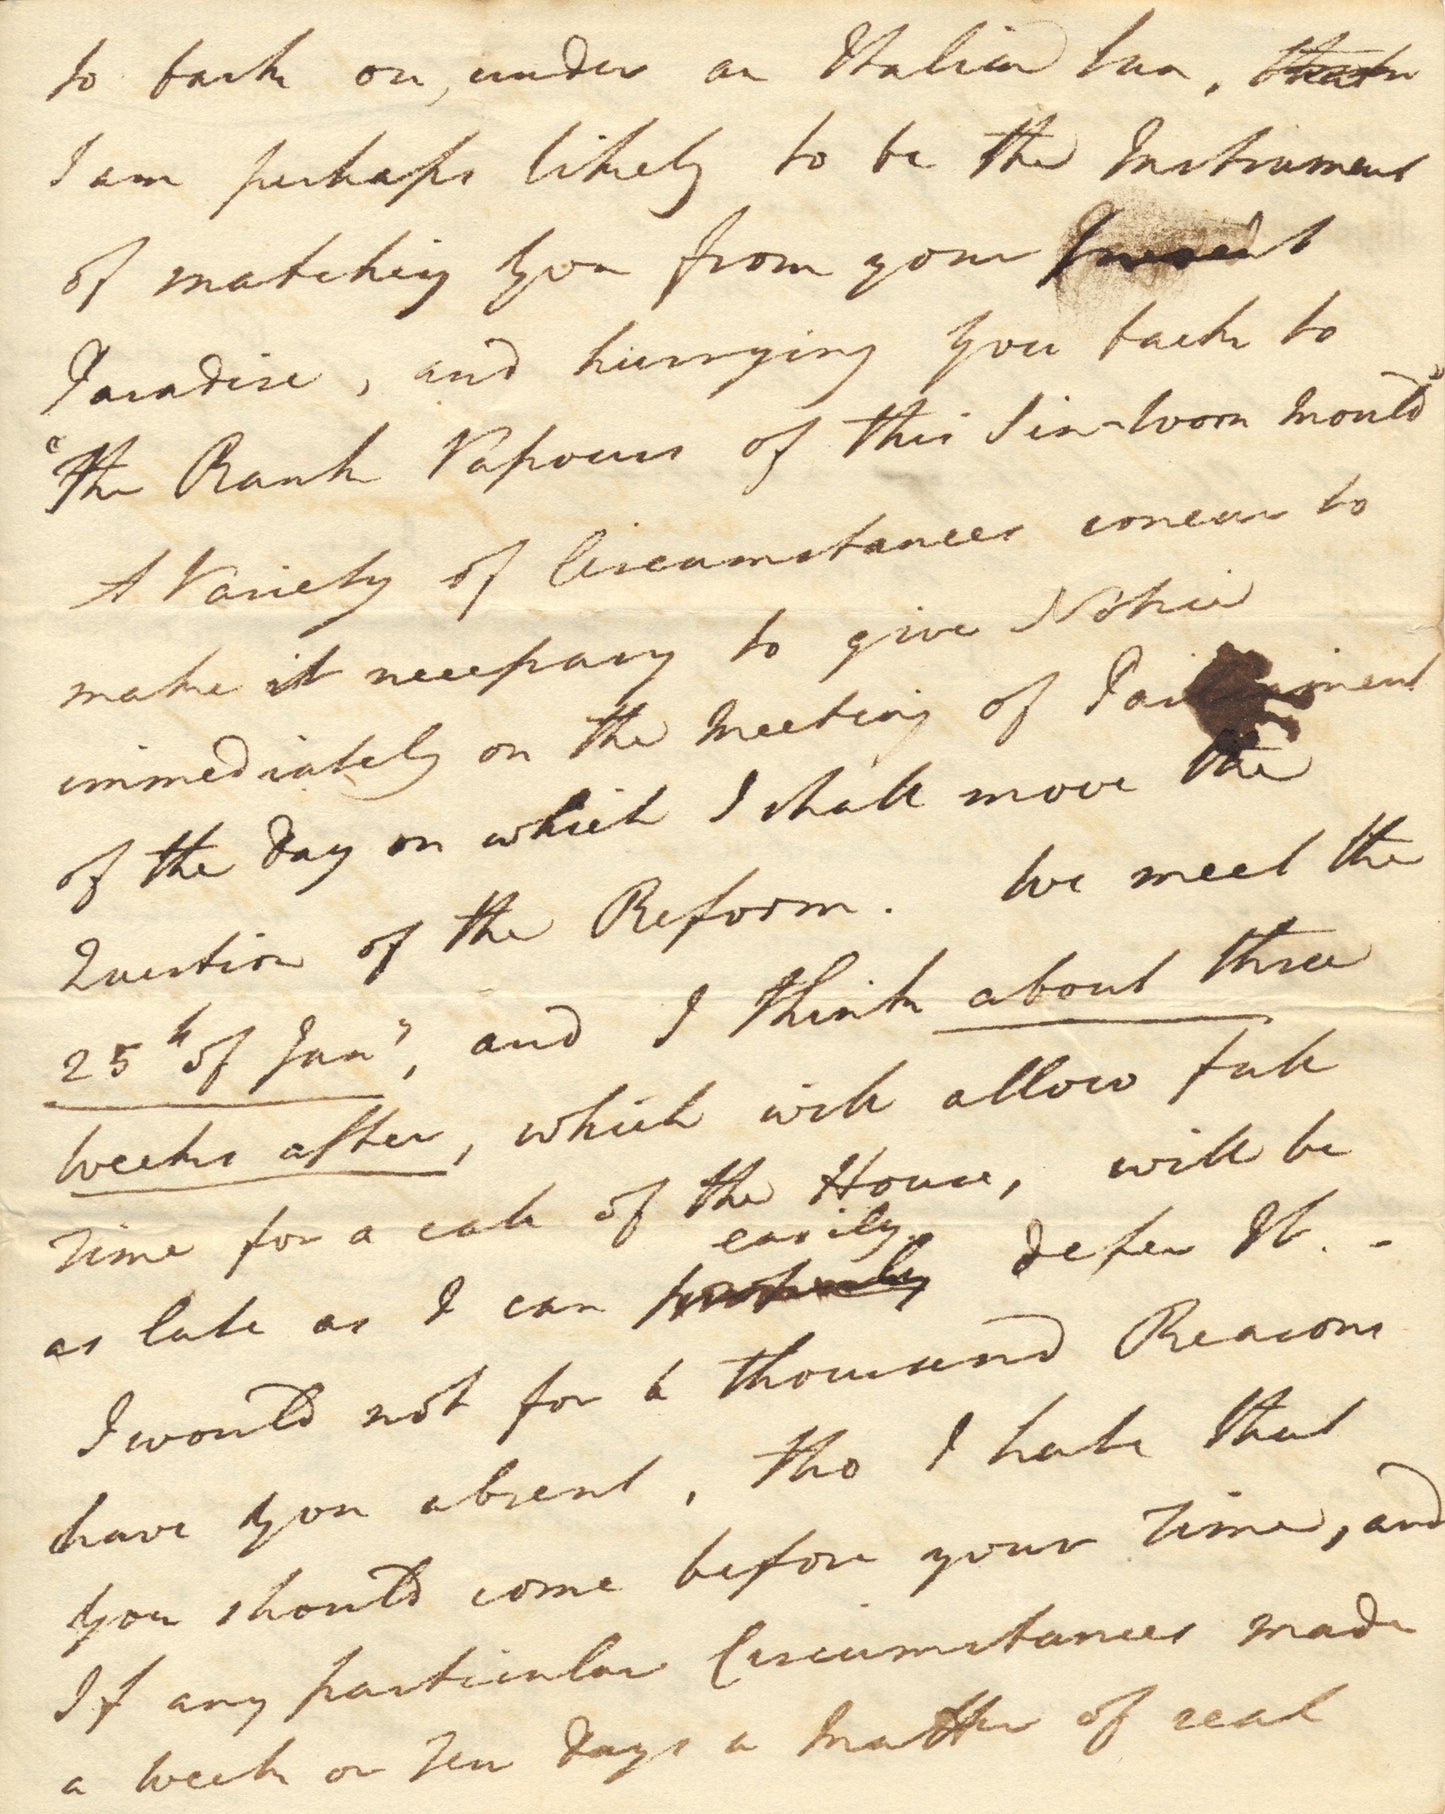 to bask on, under an Italian Sun, that
I am perhaps likely to be the Instrument
of snatching you from your Present
Paradise, and hurrying you back to
"the Rank Vapours of this Sin-worn Mould"
A Variety of Circumstances concur to
make it necessary to give Notice
immediately on the Meeting of Parliament
of the Day on which I shall move the
Question of the Reform. We meet the
25th of Jany, and I think about three
Weeks after, which will allow full
Time for a call of the House, will be
easily
as late as I can defer It. -
I would not for a thousand Reasons
have you absent, tho I hate that
you should come before your Time, and
If any particular Circumstances made
a Week or Ten Days a Matter of real